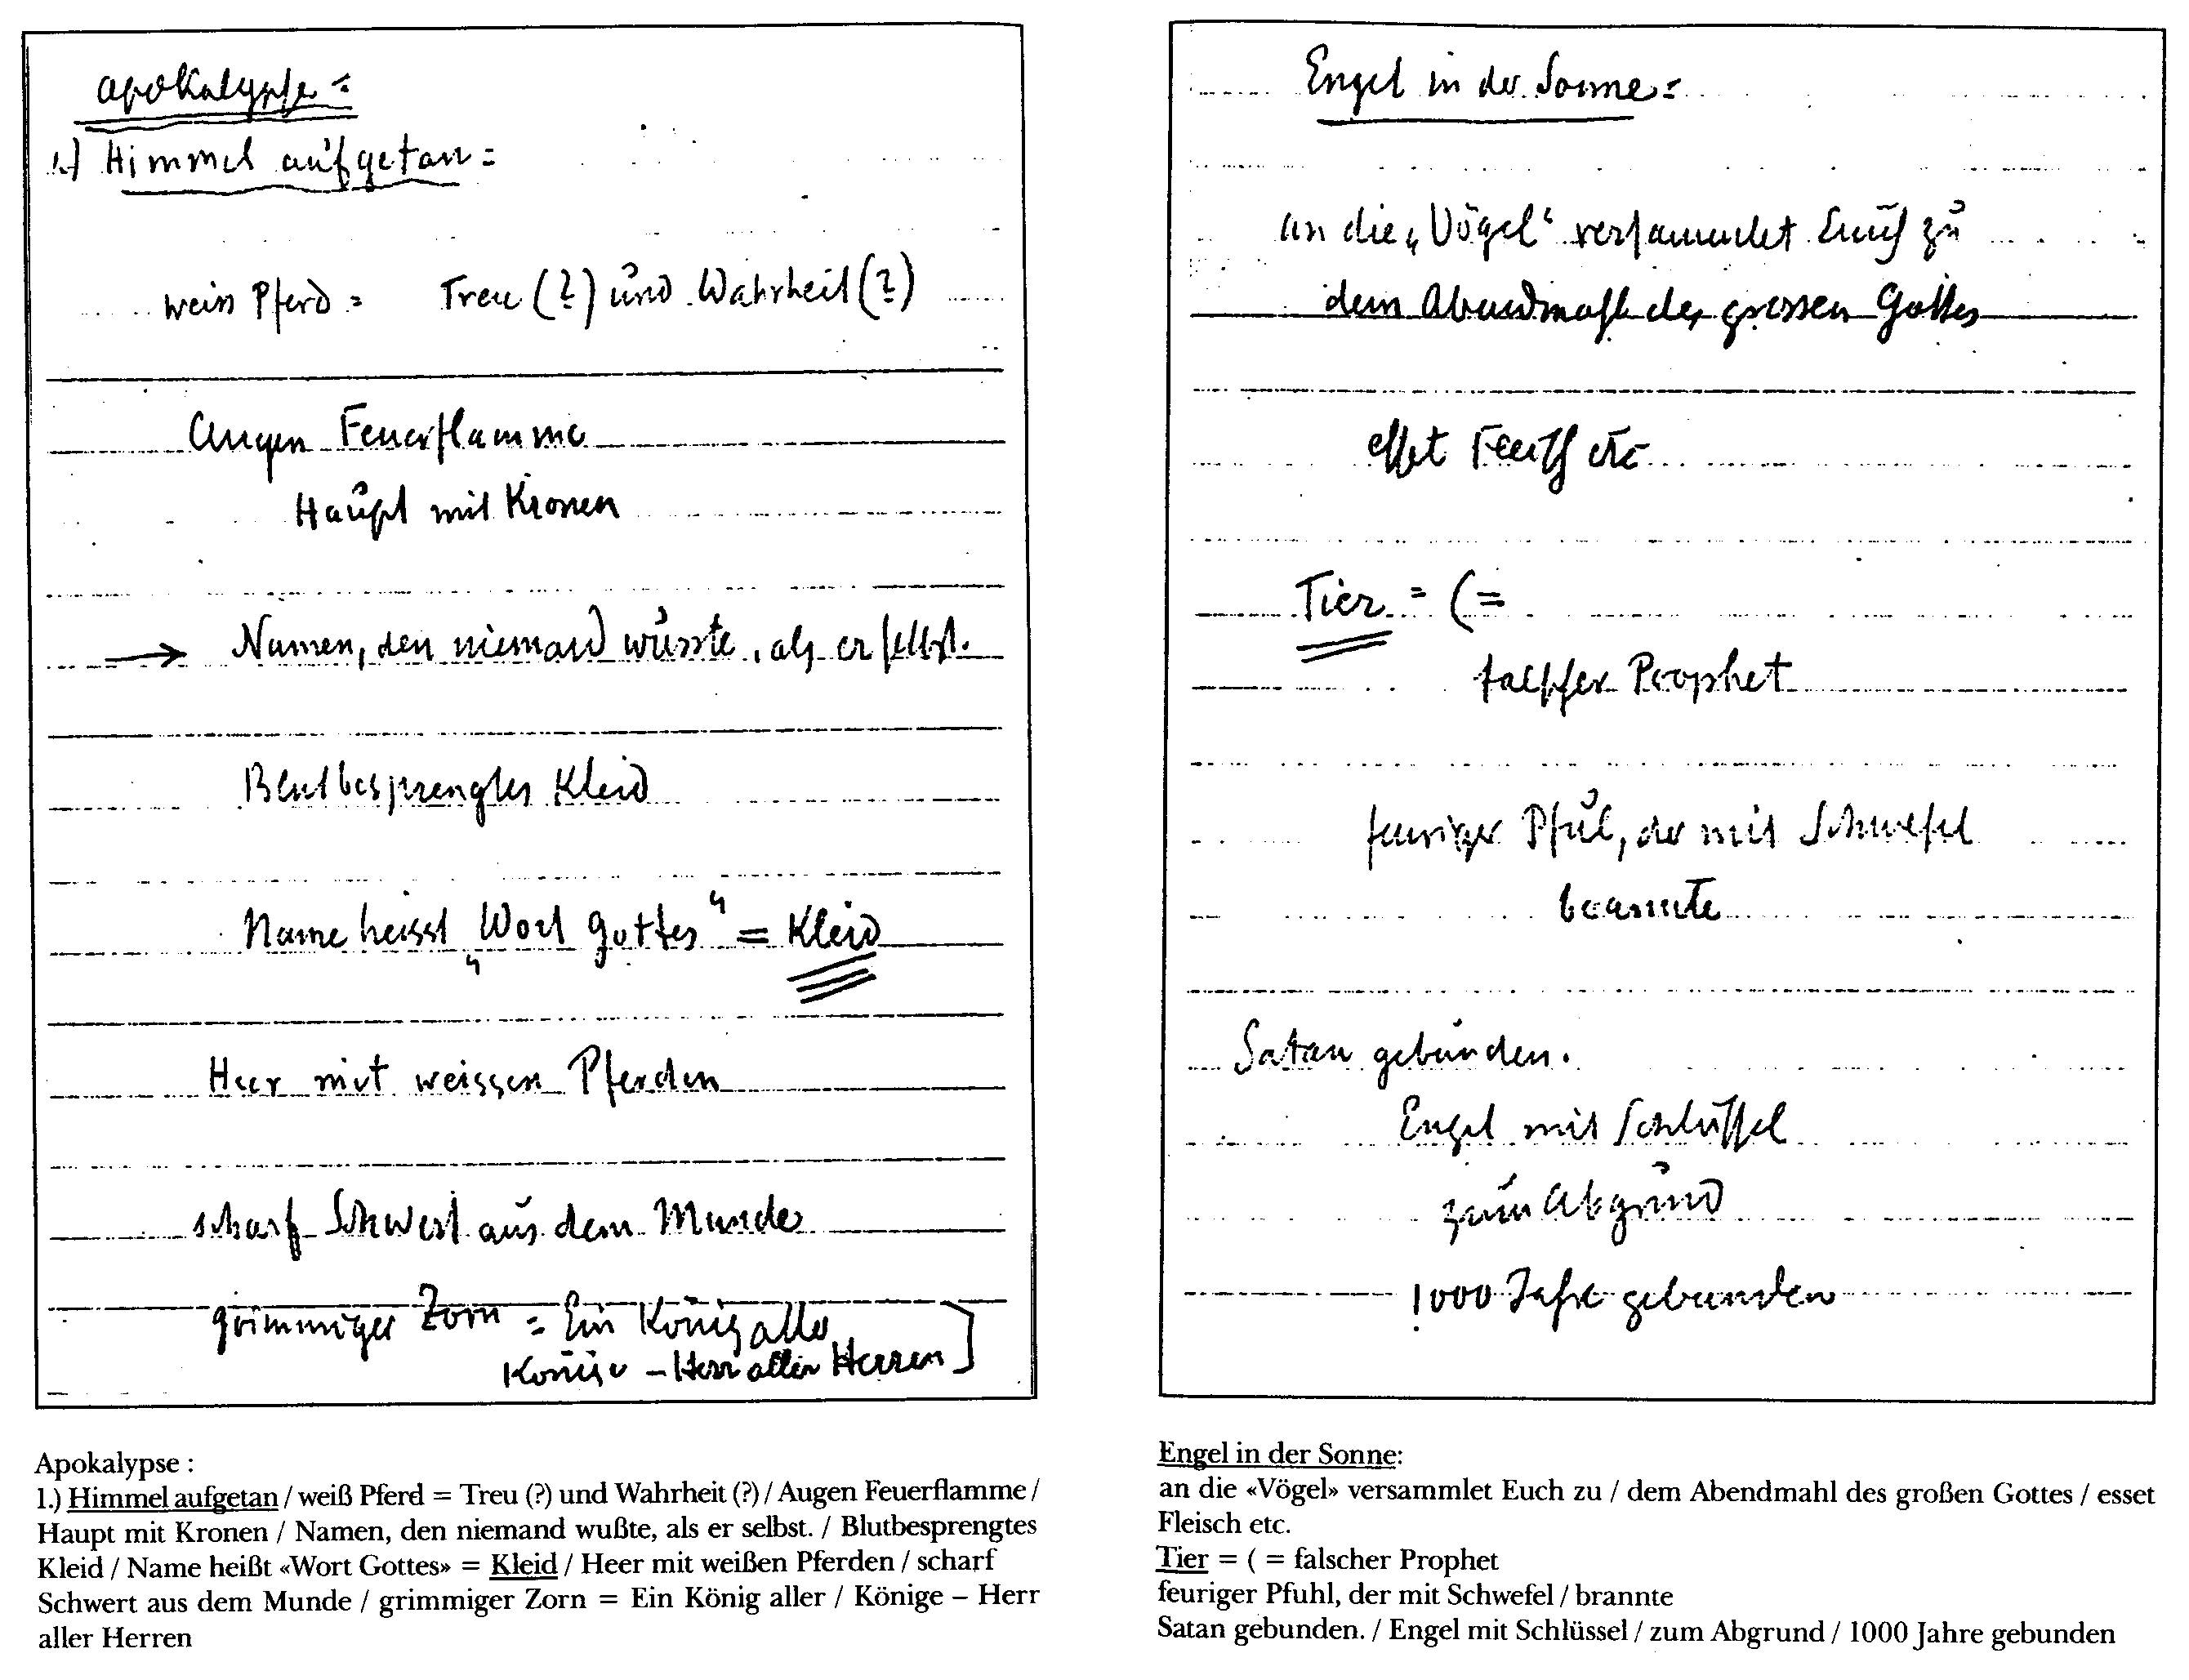 Apokalypse =
1.) Himmel aufgetan =
weiss Pferd = Treu (?) und Wahrheit (?)
Augen Feuerflamme
Haupt mit Kronen
→ Namen, den niemand wusste, als er selbst.
Blutbesprengtes Kleid
Name heisst „Wort Gottes“ = Kleid
Heer mit weissen Pferden
scharf Schwert aus dem Munde
grimmiger Zorn = Ein König aller
Könige – Herr aller Herren ]
Engel in der Sonne =
an die „Vögel“ versammlet Euch zu
dem Abendmahl des grossen Gottes
esset Fleisch etc
Tier = ( =
falscher Prophet
feuriger Pful, der mit Schwefel
brannte
Satan gebunden.
Engel mit Schlüssel
zum Abgrund
1000 Jahre gebunden
Apokalypse :
1.) Himmel aufgetan / weiß Pferd = Treu (?) und Wahrheit (?) / Augen Feuerflamme /
Haupt mit Kronen / Namen, den niemand wußte, als er selbst. / Blutbesprengtes
Kleid / Name heißt «Wort Gottes» = Kleid / Heer mit weißen Pferden / scharf
Schwert aus dem Munde / grimmiger Zorn = Ein König aller / Könige – Herr
aller Herren
Engel in der Sonne:
an die «Vögel» versammlet Euch zu / dem Abendmahl des großen Gottes / esset
Fleisch etc.
Tier = ( = falscher Prophet
feuriger Pfuhl, der mit Schwefel / brannte
Satan gebunden. / Engel mit Schlüssel / zum Abgrund / 1000 Jahre gebunden